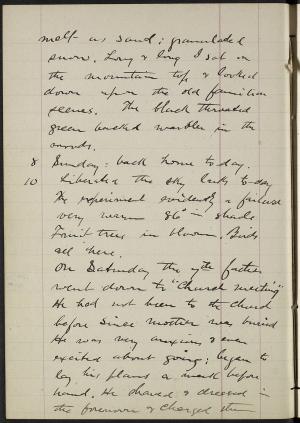 melt as sand; granulated
snow. Long & long I sat on
the mountain top & looked
down upon the old familiar
scenes. The black throated
green backed warbler in the
woods.
8 Sunday: back home to-day.
10 Liberated the sky larks to-day
The experiment evidently a failure
very warm 86° in shade
Fruit trees in bloom. Birds
all here.
On Saturday the 7th father
went down to "Church meeting"
He had not been to the church
before since mother was buried
He was very anxious & even
excited about going; began to
lay his plans a week before
hand. He shaved & dressed in
the forenoon & charged